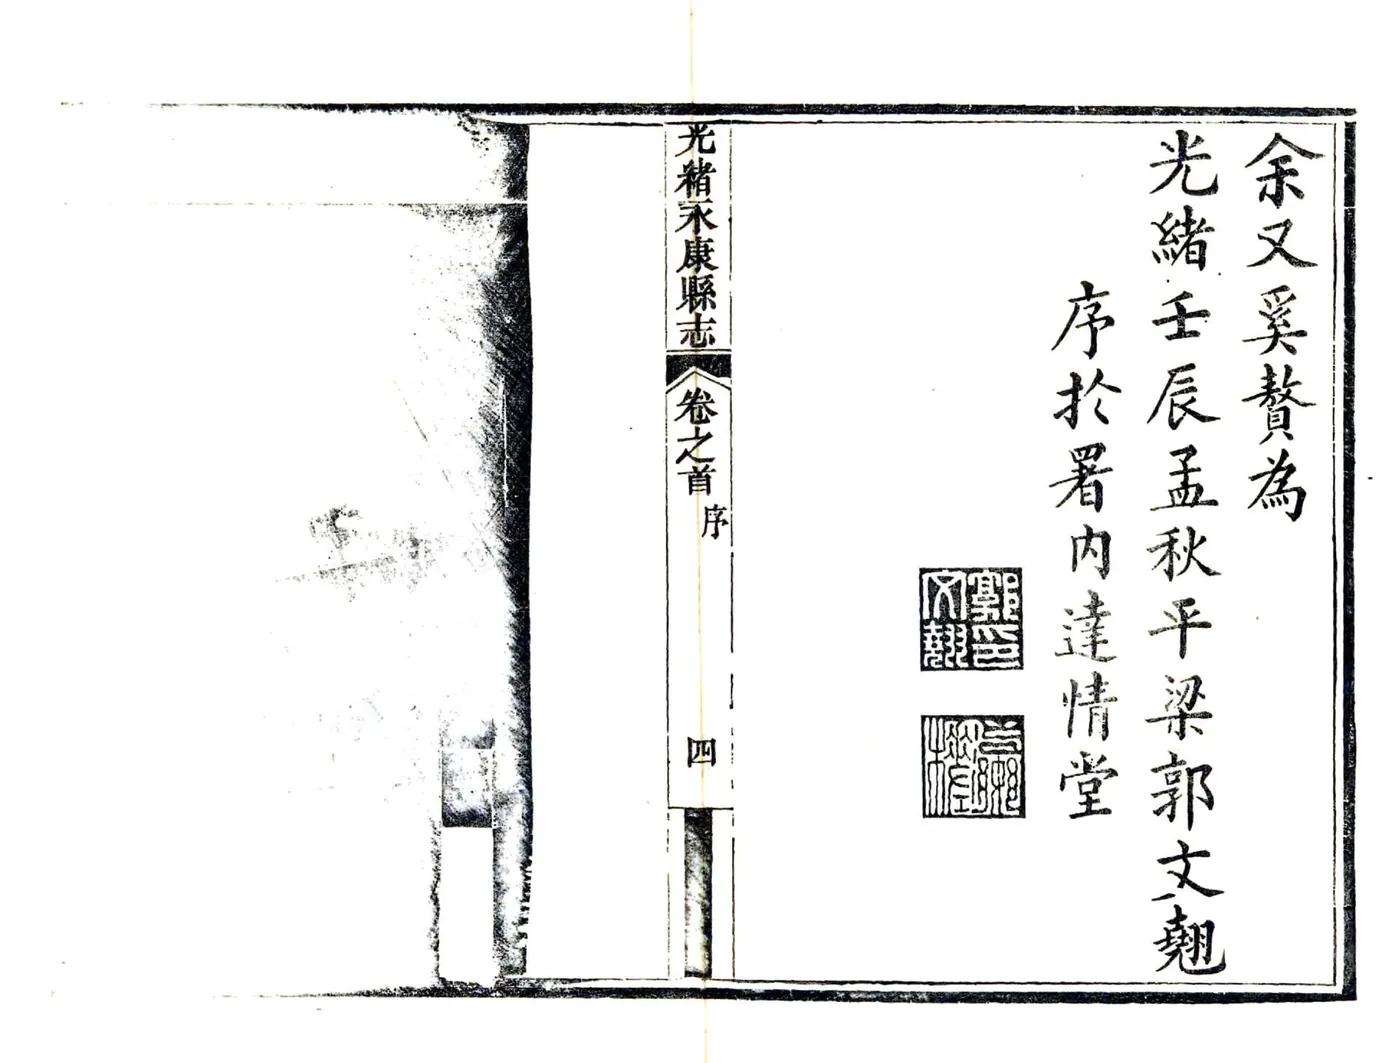 余又奚贅為
光緒壬辰孟秋平梁郭文翹
序於署内達情堂
郭印文翹
光緒永康縣志
卷之首
序
四